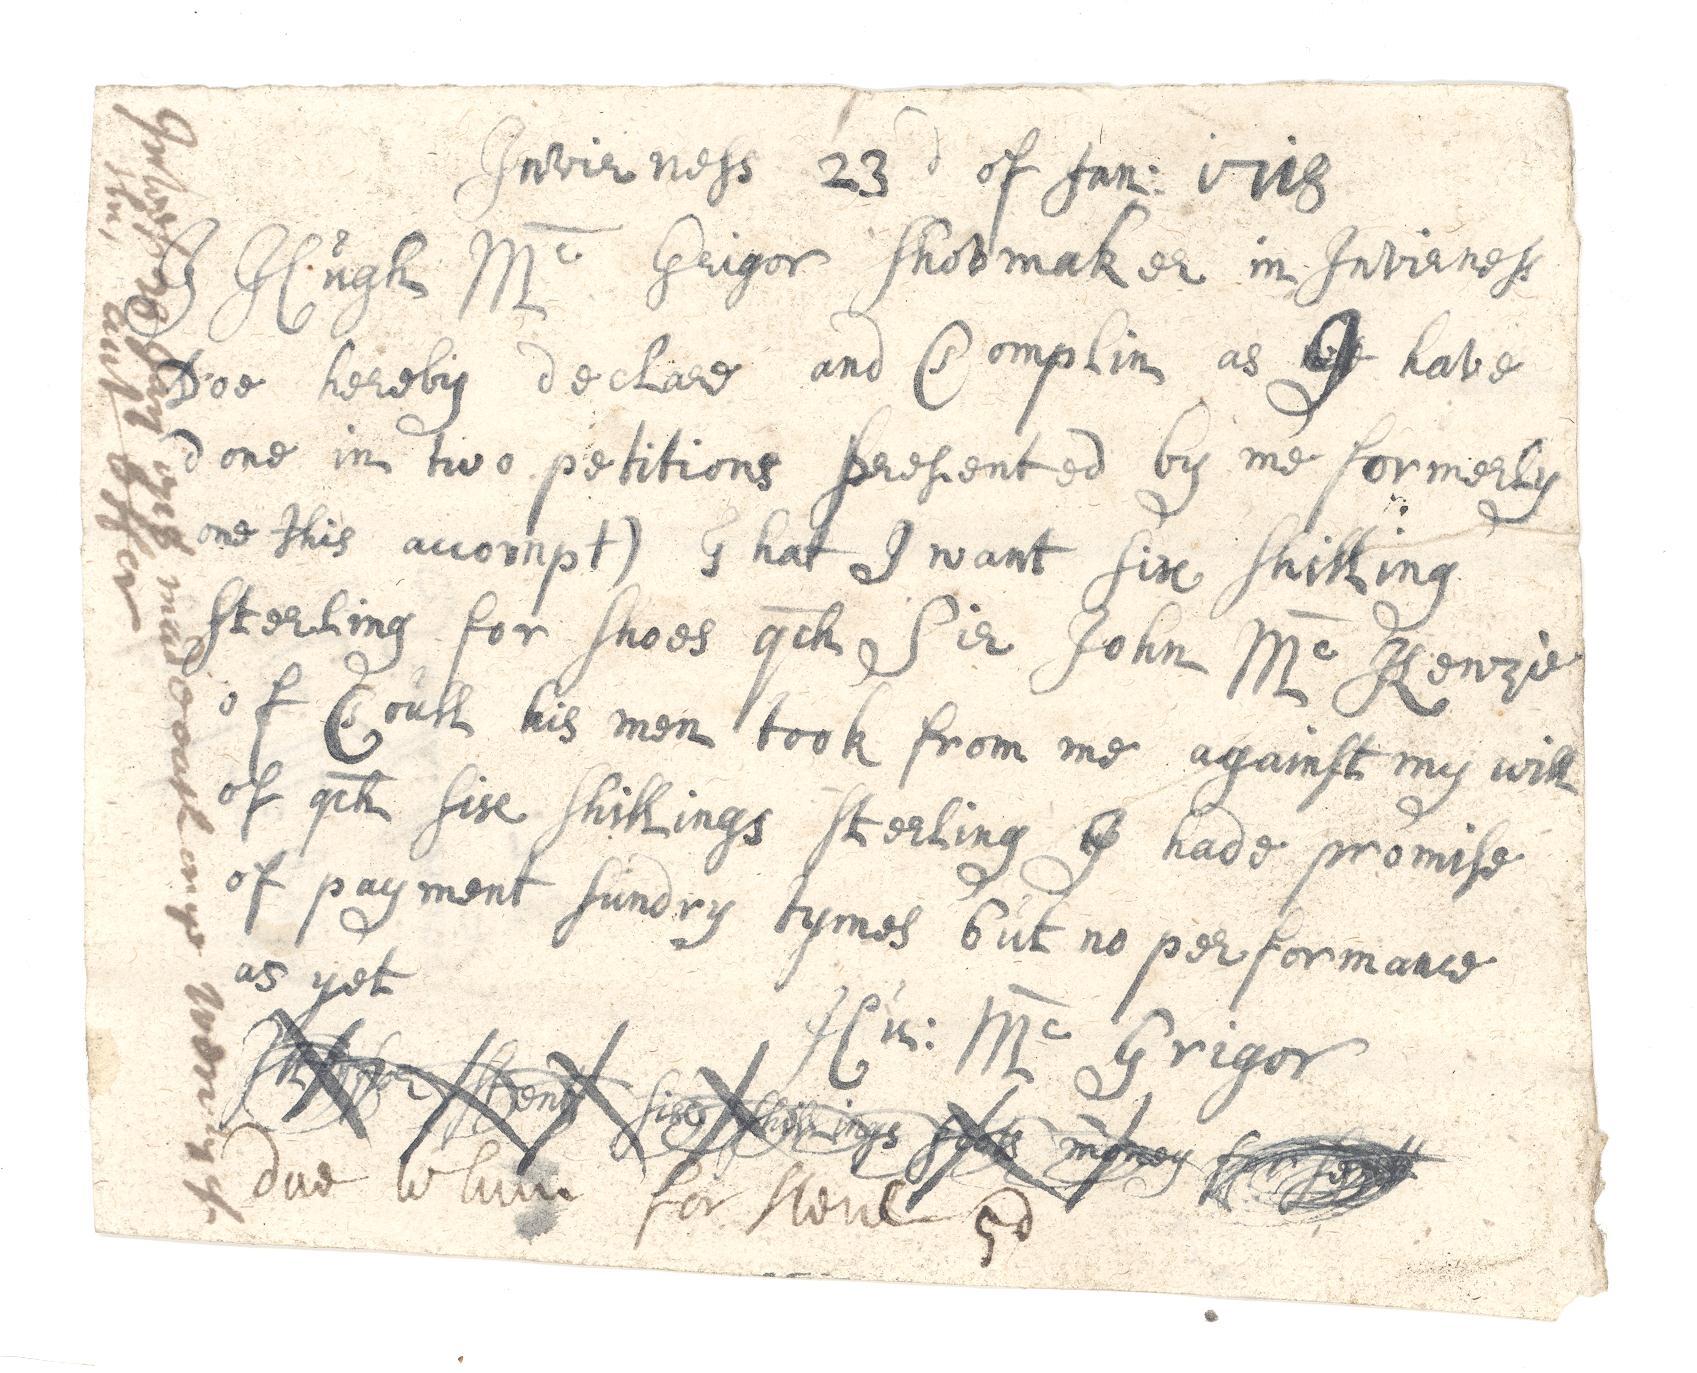 Invierness 23d of Jan: 1718
I Hugh Mc Grigor Shovmaker in Invierness
Doe hereby declare and Complin as I have
done in two petitions presented by me formerly
one this accornpt) That I want sixe shilling
sterling for shoes qch Sir John Mc Kenzie
of Coull his men took from me against my will
of qch sixe shillings sterling I hade promise
of payment sundry tymes but no performance
as yet
Hu: Mc Grigor
sixe shillings scots money
due for 5d